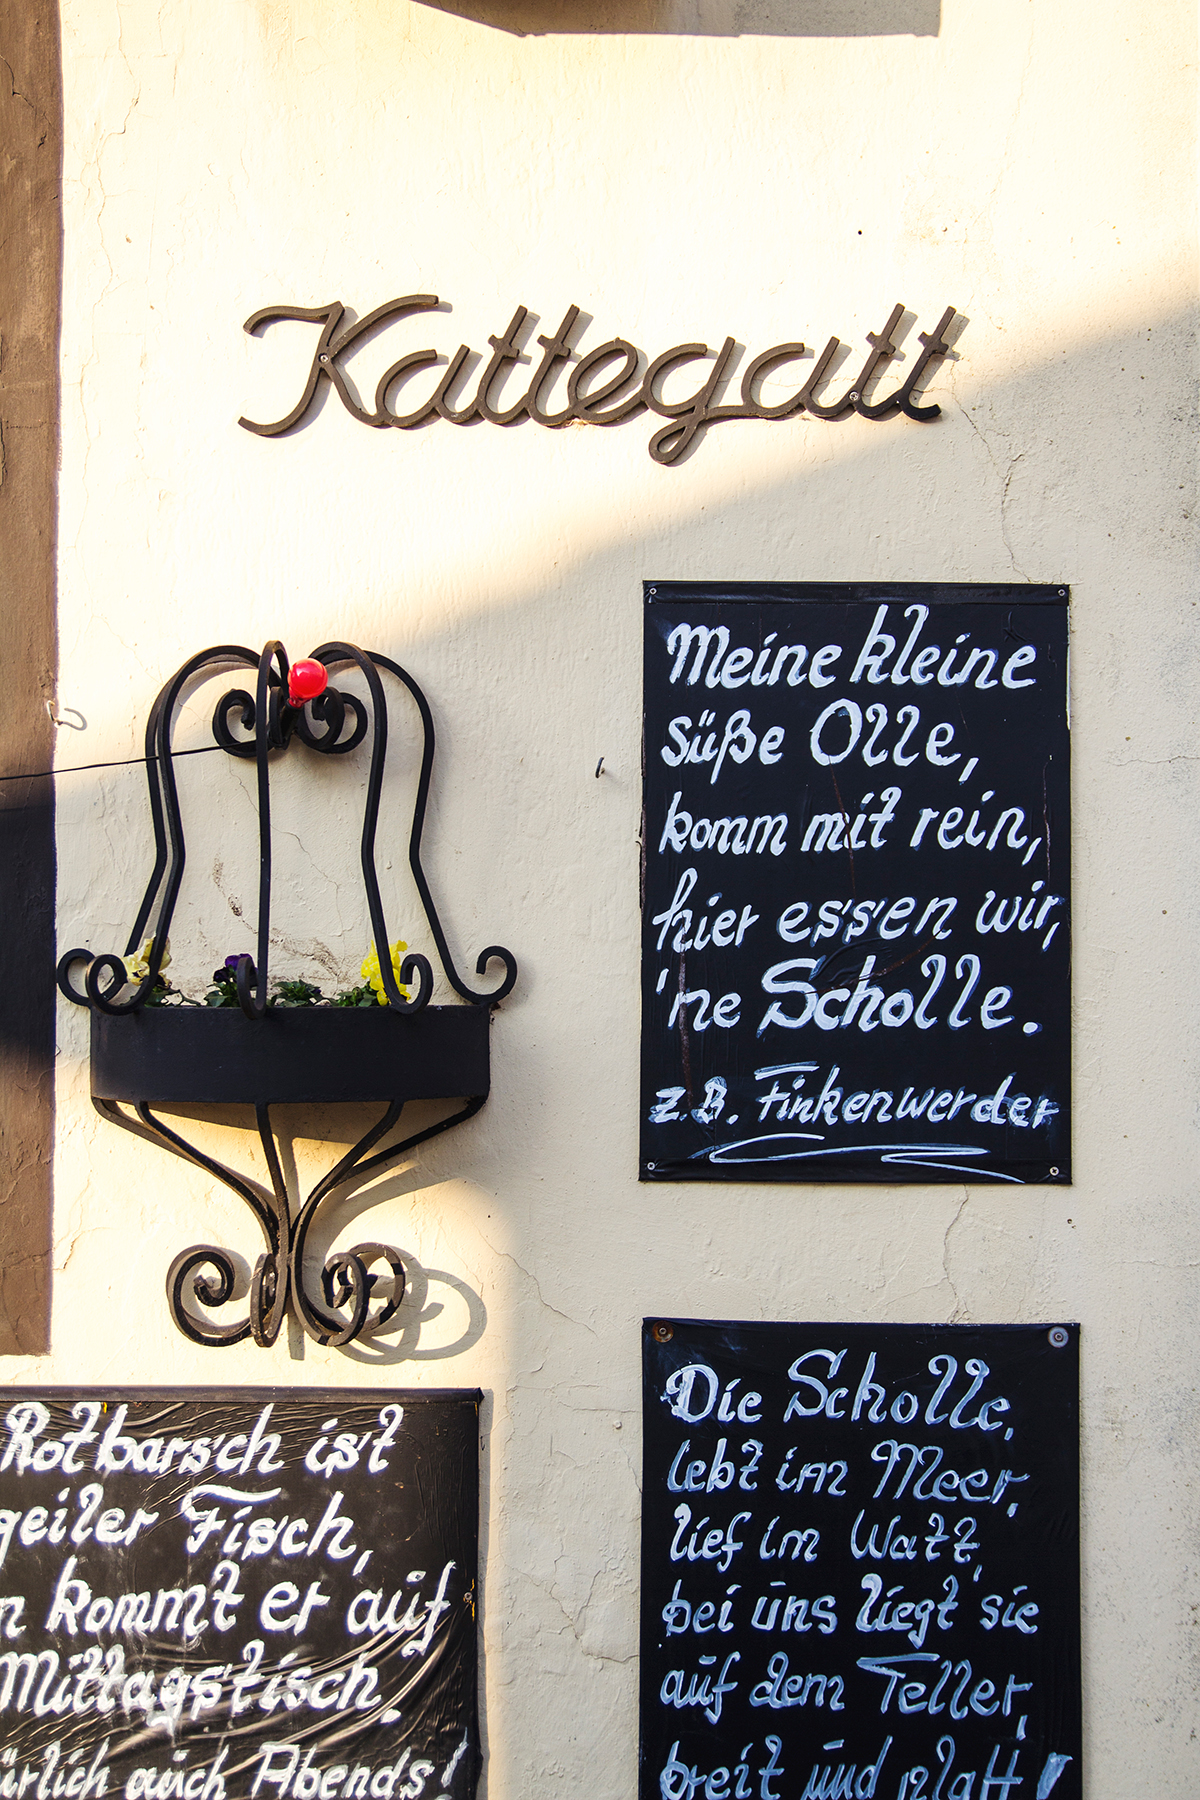 Kattegatt
Meine kleine
süße Olle,
komm mit rein,
hier essen wir,
'ne Scholle.
z.B. Finkenwerder
Die Scholle,
lebt im Meer,
lief im Watt,
bei uns liegt sie
auf dem Teller,
breit und platt!
Rotbarsch ist
geiler Fisch,
kommt er auf
Mittagstisch.
auch Abends!